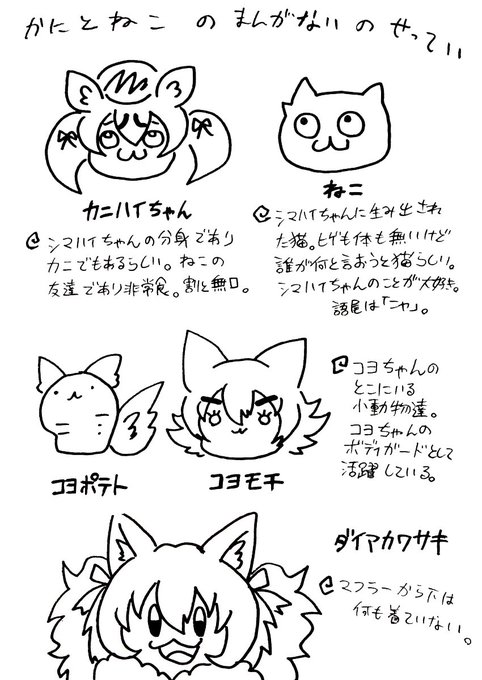 かにとねこ の まんがない の せってい
カニハイちゃん
シマハイちゃんの分身であり
カニでもあるらしい。ねこの
友達であり非常食。割と無口。
ねこ
シマハイちゃんに生み出され
た猫。ヒゲも体も無いけど
誰が何と言おうと猫らしい。
シマハイちゃんのことが大好き。
語尾は「ニャ」。
コヨポテト
コヨモチ
コヨちゃんの
とこにいる
小動物達。
コヨちゃんの
ボディガードとして
活躍している。
ダイアカワサキ
マフラーから下は
何も着ていない。